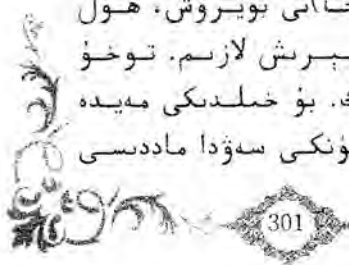 بويرۇش، ھول
بېرىش لازىم. توخۇ
بۇ خىلدىكى مەيدە
سەۋدا ماددىسى
301